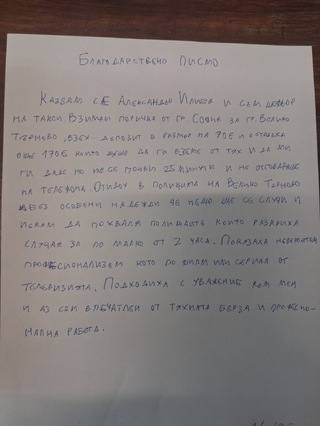 БЛАГОДАРСТВЕНО ПИСМО
КАЗВАМ СЕ АЛЕКСАНДЪР ИЛИЕВ И СЪМ ШОФЬОР
НА ТАКСИ. ВЗИМАМ ПОРЪЧКА ОТ ГР. СОФИЯ ЗА ГР. ВЕЛИКО
ТЪРНОВО, ВЗЕХ ДЕПОЗИТ В РАЗМЕР НА 70Е И ОСТАВАХА
ОЩЕ 170Е КОИТО ДА ГИ ВЗЕМЕ ОТ ТЯХ И ДА МИ
ГИ ДАДЕ НО НЕ СЕ ПОЯВИ 25 МИНУТИ И НЕ ОТГОВАРЯШЕ
НА ТЕЛЕФОНА. ОТИДОХ В ПОЛИЦИЯТА НА ВЕЛИКО ТЪРНОВО
БЕЗ ОСОБЕНИ НАДЕЖДИ ЧЕ НЕЩО ЩЕ СЕ СЛУЧИ И
ИСКАМ ДА ПОХВАЛЯ ПОЛИЦАИТЕ КОИТО РАЗКРИХА
СЛУЧАЯ ЗА ПО МАЛКО ОТ 2 ЧАСА. ПОКАЗАХА НЕВЕРОЯТЕН
ПРОФЕСИОНАЛИЗЪМ КАТО ПО ФИЛМ ИЛИ СЕРИАЛ ОТ
ТЕЛЕВИЗИЯТА. ПОДХОДИХА С УВАЖЕНИЕ КЪМ МЕН
И АЗ СЪМ ВПЕЧАТЛЕН ОТ ТЯХНАТА БЪРЗА И ПРОФЕСИО-
НАЛНА РАБОТА.